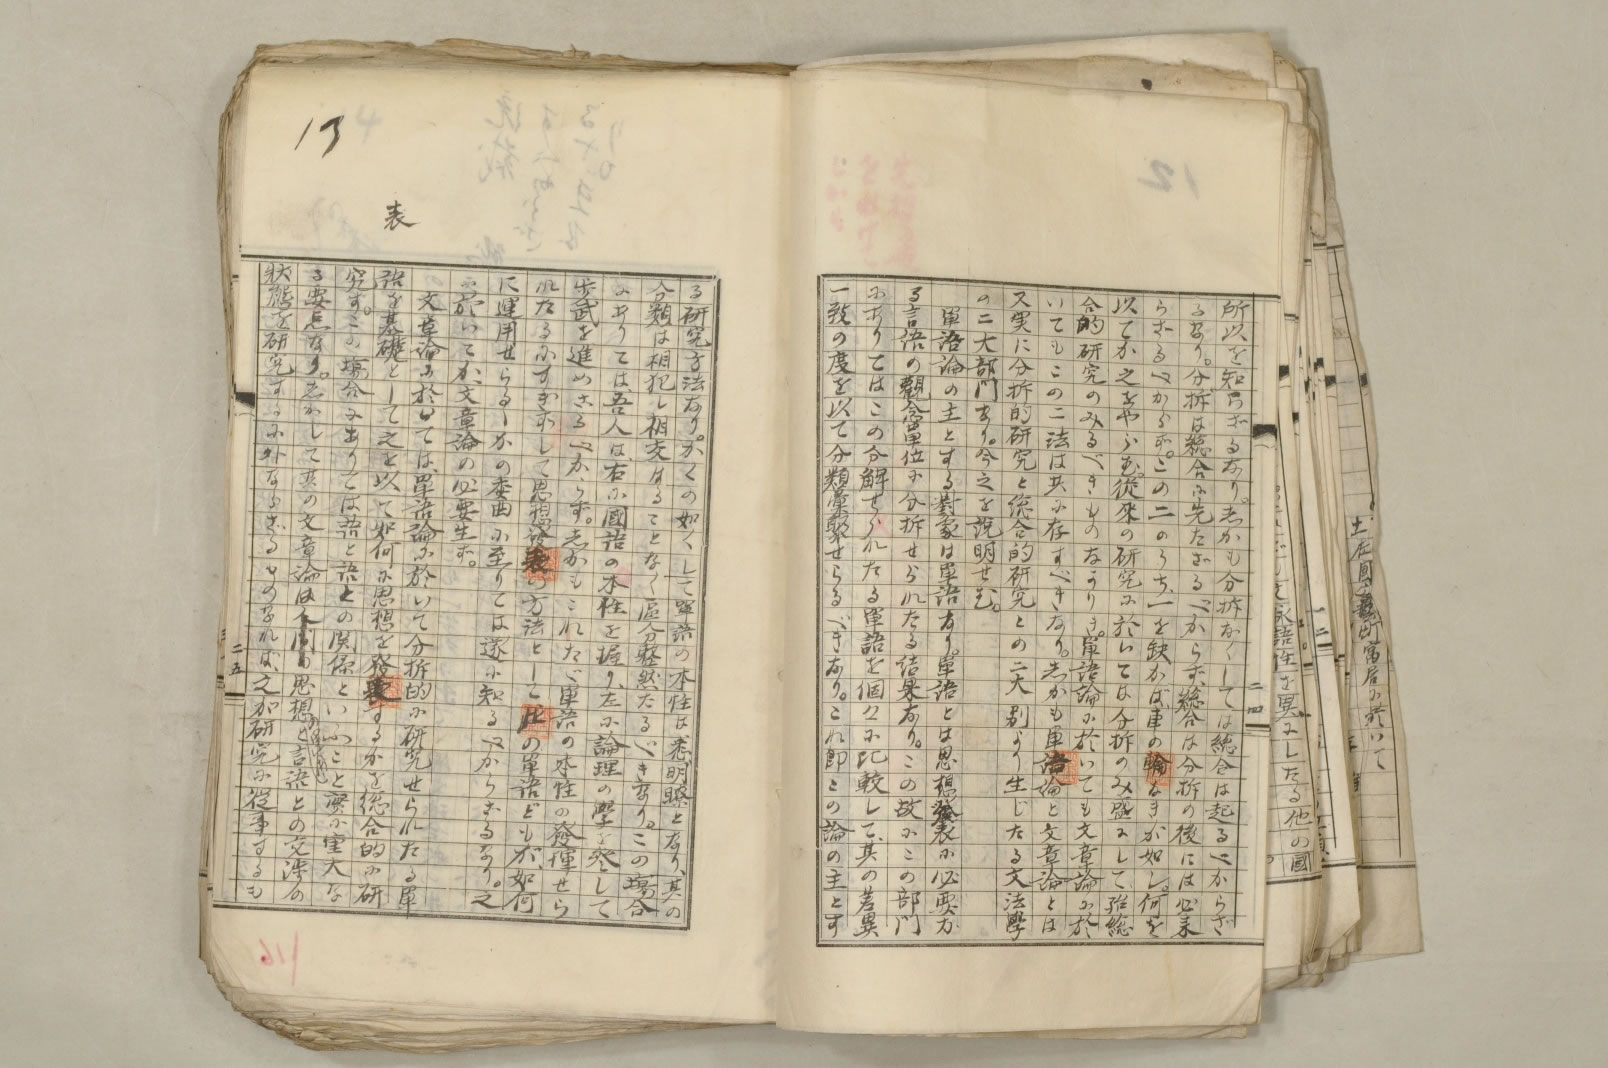 所以を知らざるなり。しかも分拆なくしては綜合は起るべからざ
るなり。分拆は綜合に先たざるべからず、綜合は分拆の後には必来
らざるべからず。この二のうち、一を缺かば車の輪なきが如し。何を
以てか之をやらむ。従来の研究に於いては分拆のみ盛にして綜
合的研究のみるべきものなかりき。単語論に於いても文章論に於
いてもこの二法は共に存すべきなり。しかも単語論と文章論とは
又実に分拆的研究と綜合的研究との二大別より生じたる文法学
の二大部門なり。今之を説明せむ。
単語論の主とする対象は単語なり。単語とは思想発表に必要な
る言語の観念単位に分拆せられたる結果なり。この故にこの部門
にありてはこの分解せられたる単語を個々に比較して、其の差異
一致の度を以て分類彙聚せらるべきなり。これ即この論の主とす
二四
13
表
る研究方法なり。かくの如くして単語の本性は悉明瞭となり、其の
分類は相犯し相交はることなく区分整然たるべきなり。この場合
にありては、吾人は、右に国語の本性を握り、左に論理の学を発して
歩武を進めざるべからず。しかもこれたゞ単語の本性の発揮せら
れたるにすぎずして思想発表の方法として此の単語どもが如何
に運用せらるゝかの委曲に至りては遂に知るべからざるなり。之
に於いてか、文章論の必要生ず。
文章論に於いては、単語論に於いて分拆的に研究せられたる単
語を基礎として之を以て如何に思想を発表するかを綜合的に研
究す。この場合にありては語と語との関係といふこと実に重大な
る要点なり。しかして其の文章論は人間の思想と言語との交渉の
状態を研究するに外ならざるものなれば、之が研究に従事するも
二五
116